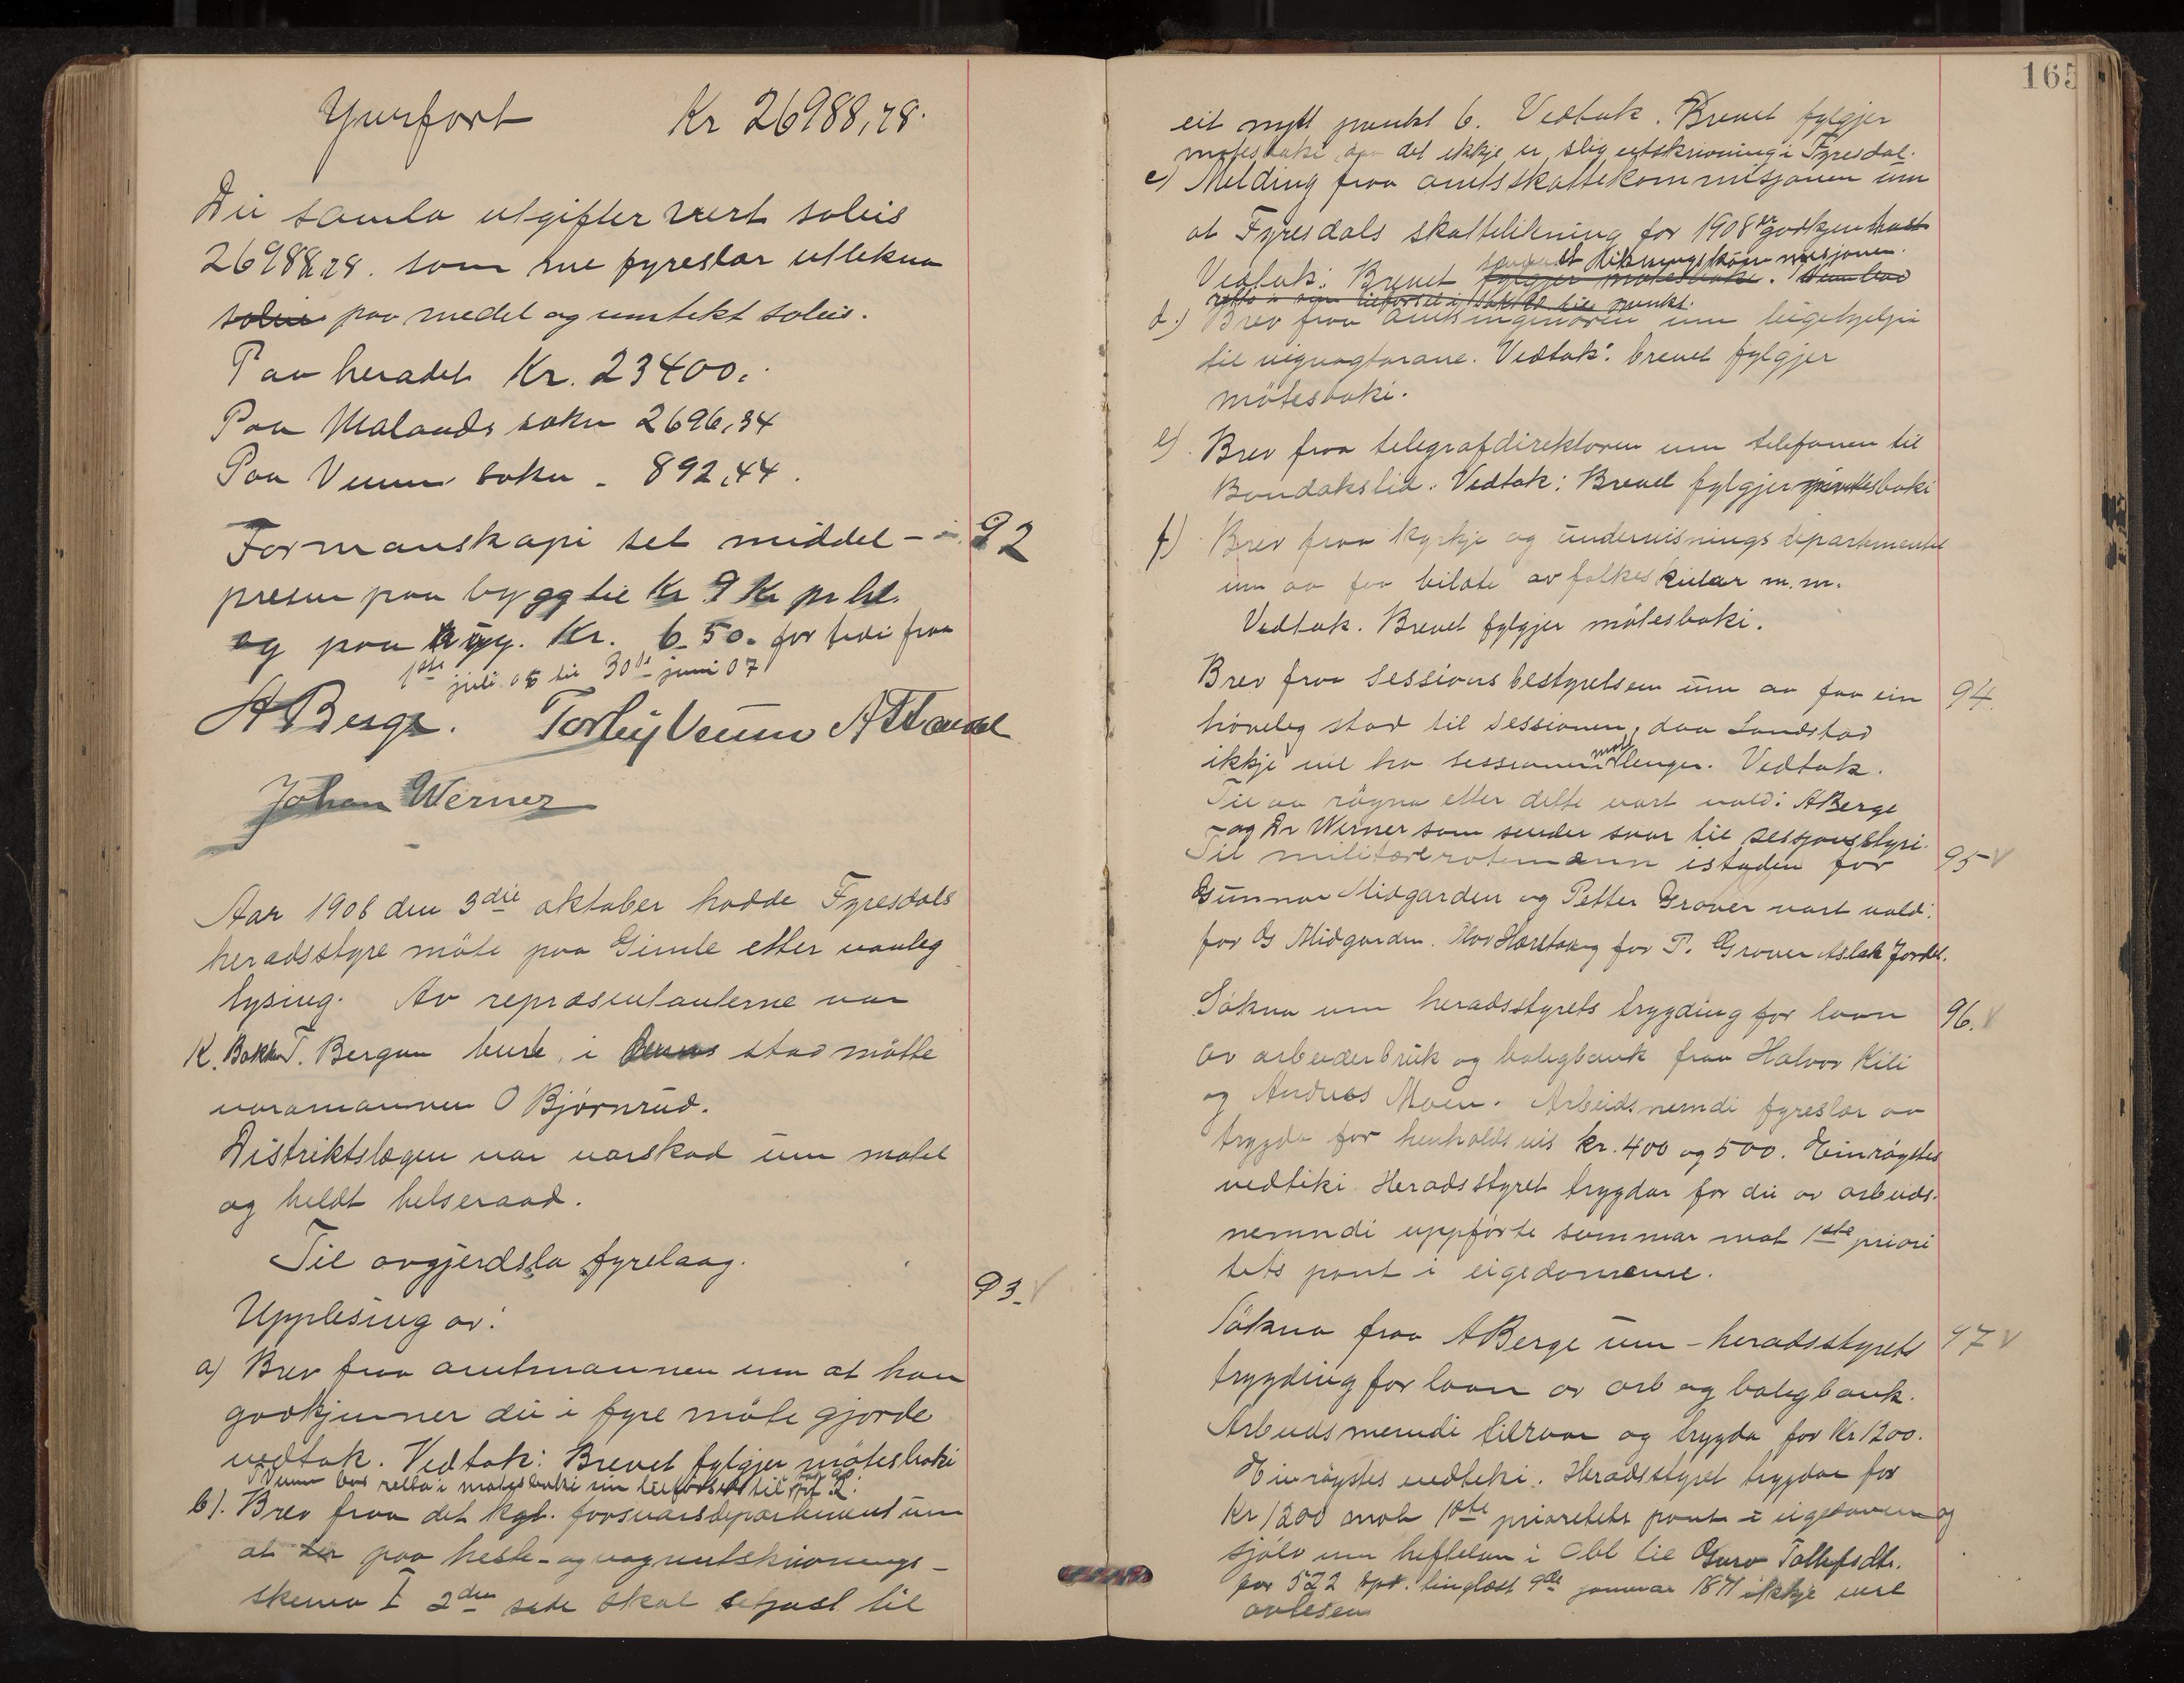 Yverfort Kr 26988,78.
Dei samla utgifter vert soleis
26988,78. som me fyreslar utlikna
soleis paa medel og inntekt soleis.
Paa heradet Kr. 23400,.
Paa Molands sokn 2696,34
Paa Veum sokn - 892,44.
Formanskapi set middel- 92
prisen paa bygg til Kr 9 Kr pr hl.
og paa rug. Kr. 6.50. for tidi fraa
1ste juli 06 til 30te juni 07
A Berge. Torleiv Veum A Taand
Johan Werner
Aar 1906 den 3die oktober hadde Fyresdals
heradsstyre möte paa Gimle etter vanleg
lysing. Av repræsentanterne var
K. Bakka T. Bergan burte, i stad mötte
varamannen O Bjørnrud.
Distriktslægen var varskad um mötet
og heldt helseraad.
Til avgjerdsla fyrelaag.
93.
Upplesing av:
a) Brev fraa amtmannen um at han
godkjenner dei i fyre möte gjorde
vedtak. Vedtak: Brevet fylgjer mötesboki
b). Brev fraa det kgl. forsvarsdepartement um
at der paa heste- og vognutskrivnings-
skema I 2den side skal setjast til
165
eit nytt punkt 6. Vedtak. Brevet fylgjer
mötesboki, daa det ikkje er slig utskrivning i Fyresdal.
c) Melding fraa amtsskattekommisjonen um
at Fyresdals skattelikning for 1908 er godkjen
Vedtak: Brevet fylgjer mötesboki. likningskommisjonen.
d.) Brev fraa amtsingeniören um leigehjelpi
til vegvogtarane. Vedtak: brevet fylgjer
mötesboki.
e). Brev fraa telegrafdirektoren um telefonen til
Bondakslid. Vedtak: Brevet fylgjer mötesboki
f) Brev fraa kyrkje og undervisningsdepartementet
um aa faa bilæte av folkeskular m.m.
Vedtak. Brevet fylgjer mötesboki.
Brev fraa sessionsbestyrelsen um aa faa ein 94.
høveleg stad til sessionen, daa Landstad
ikkje vil ha sessionen lenger. Vedtak.
Til aa røgna etter dette vart vald: A Berge
og Dr Werner som sender svar til sessjonsstyri.
Til militærrotemænn istaden for 95
Gunnar Midgarden og Petter Grover vart vald:
for G Midgarden. Olav og for P. Grover Aslak Jordet.
Søkna um heradsstyrets trygding for laan 96.
av arbeiderbruk og boligbank fraa Halvor Kili
og Andreas Moen. Arbeidsnemdi fyreslær aa
trygda for henholdsvis kr. 400 og 500. Einrøystes
vedteki. Heradsstyret trygdar for dei av arbeids-
nemndi uppförte summar mot 1ste priori
tets pant i eigedomarne.
Søkna fraa A Berge um - heradsstyrets 97
trygding for laan av arb og boligbank.
Arbeidsnemdi tilraar og trygda for Kr 1200.
Einrøystes vedteki. Heradsstyret trygdar for
Kr 1200 mot 1ste prioritets pant i eigedomen og
sjölv um heftelsen i Obl til Guro Tallefsdtr.
for 522 spd. tinglæst 9de januar 1871 ikkje vert
avlesen